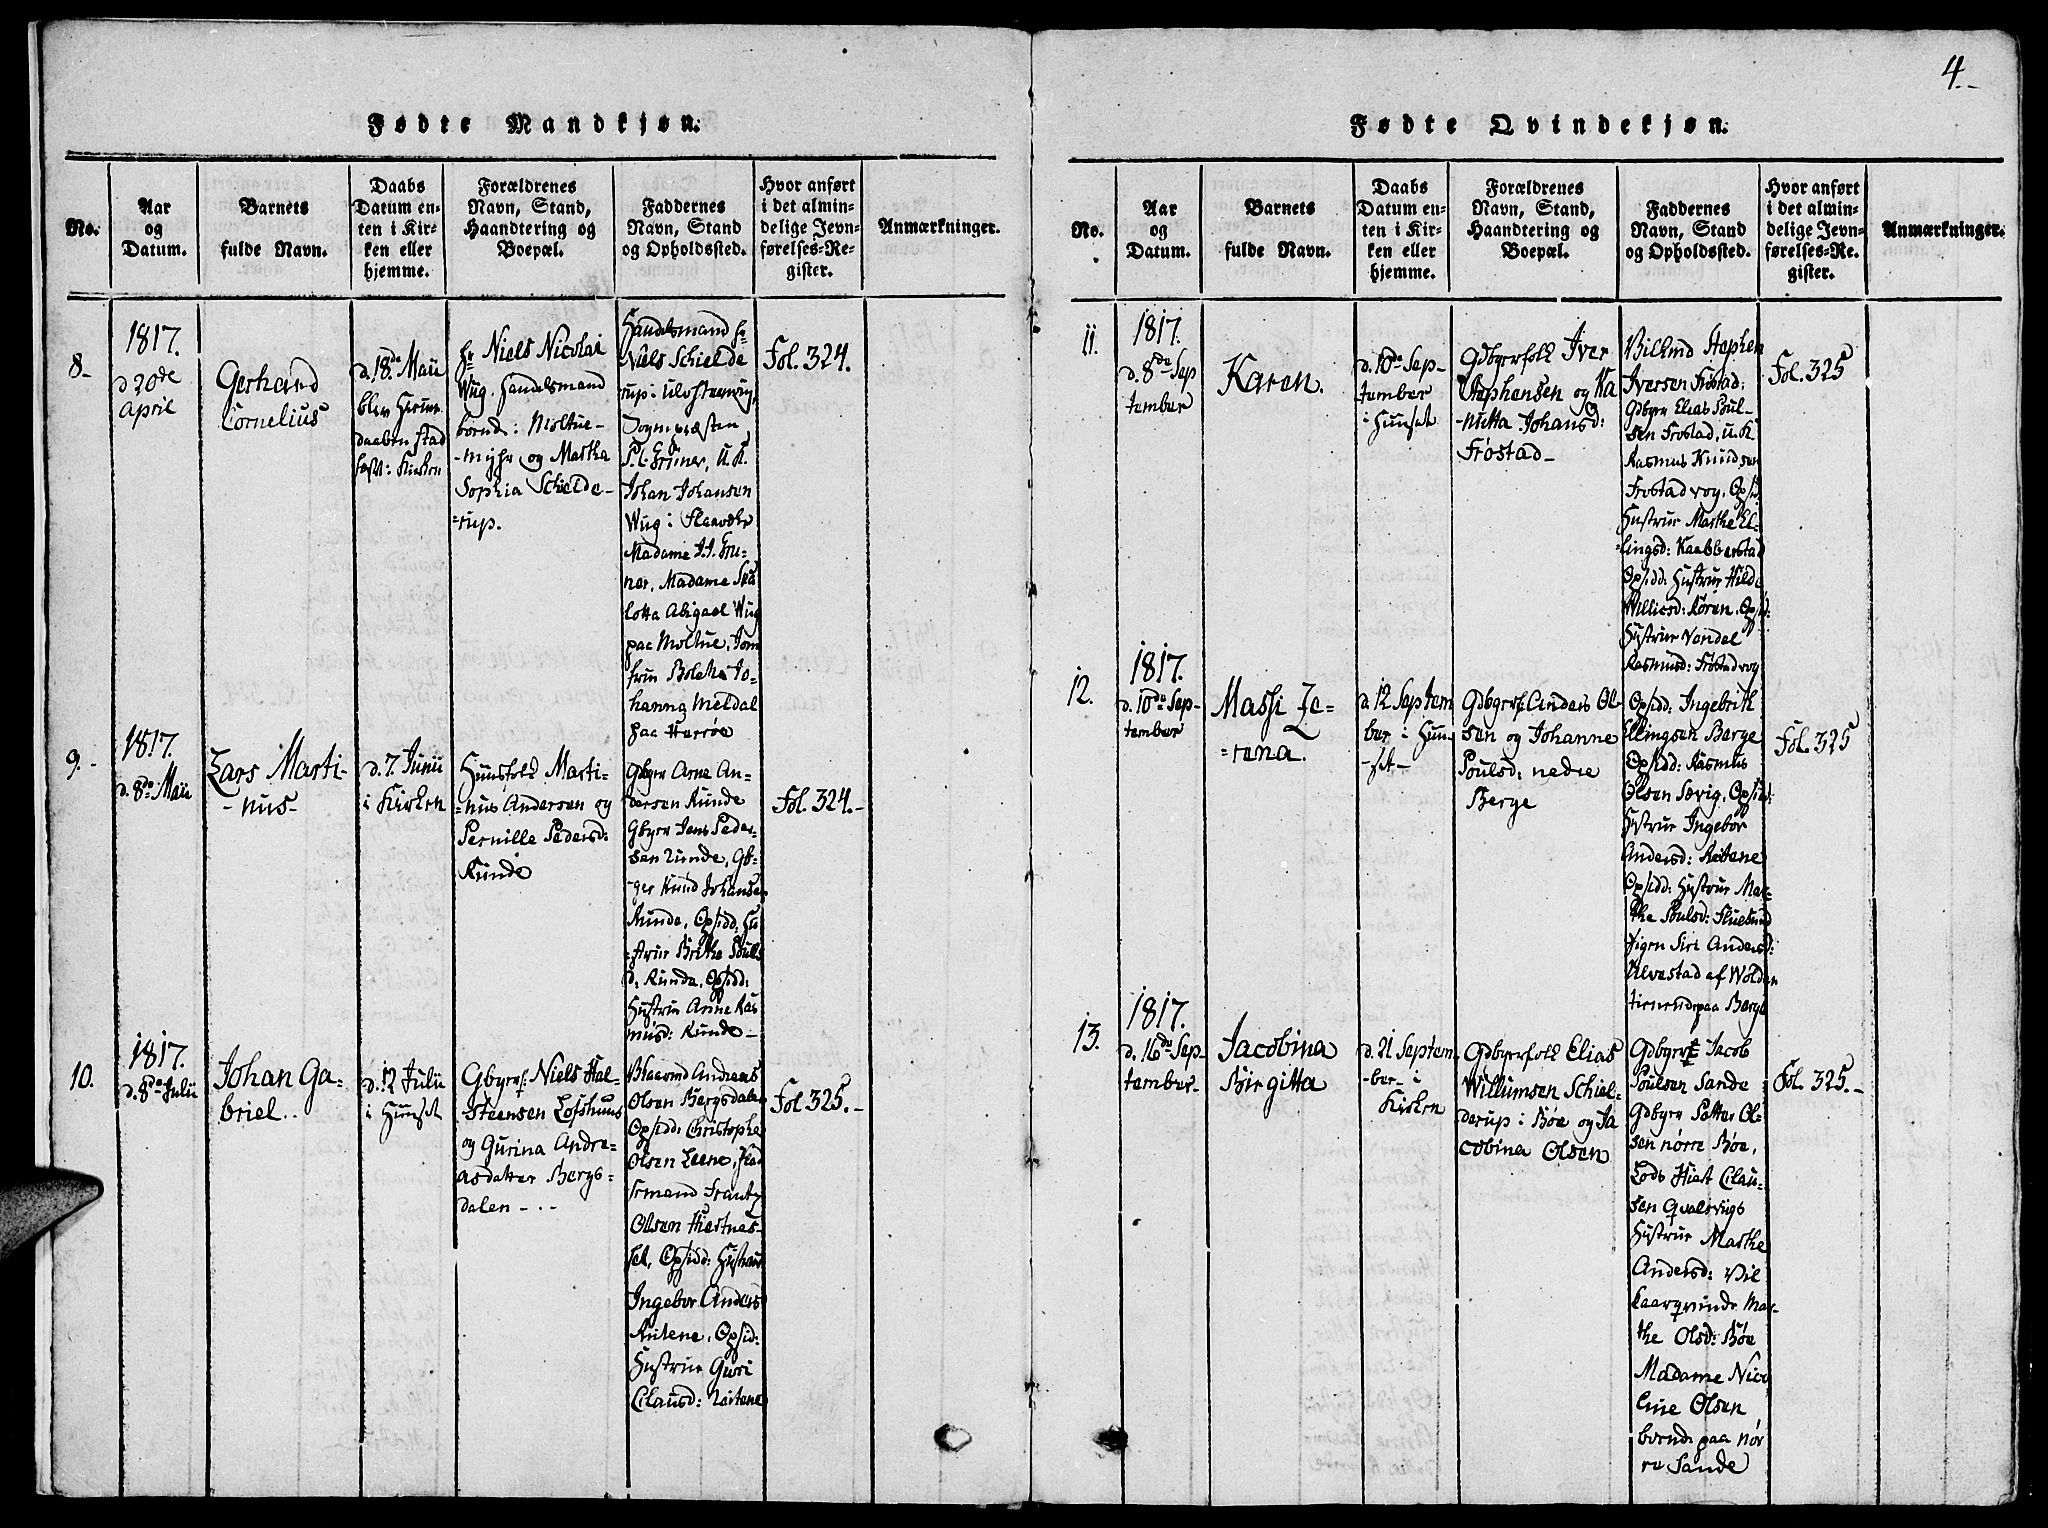 4.-
Fødte Mandkjøn.
No.
Aar
og
Datum.
Barnets
fulde Navn.
Daabs
Datum en-
ten i Kir-
ken eller
hjemme.
Forældrenes
Navn, Stand,
Haandtering og
Boepæl.
Faddernes
Navn, Stand
og Opholdssted.
Hvor anført
i det almin-
delige Jevn-
førelses-Re-
gister.
Anmærkninger.
8-
1817.
d 20de
April
Gerhard
Cornelius
d. 18de Maii
blev Hiemme
daaben stad
fæst i Kirken
Hr Niels Nicolai
Wug Handelsmand
boende: Moltue-
-myhr og Martha
Sophia Schielde-
-rup.
Handelsmand Hr
Niels Schielde
rup i Ulvsteenvig,
Sogmpræsten
Grüner, U.K.
Johan Johansen
Wug i Flaavær
Madame J.J. Grü-
ner, Madame
lotta Abigael Wug
paa Moltue, Jom
fru Bolette Jo-
hanna Meldal
paa Herröe
Fol. 324.
9.-
1817.
d. 8de Maii
Lars Marti-
-nus-
d. 7 Junii
i Kirken
Huusfolk Marti-
-nus Andersen og
Pernille Pedersd:
Runde
Gbyer Arne An-
dersen Runde
Gbyer Jens Peder-
sen Runde, Gb-
-yer Knud Johansen
Runde, Opsidd: Hu
-strue Brithe Pouls
d. Runde, Opsidd:
Hustrue Anne Ras
musd: Runde-
Fol. 324.-
10.
1817.
d. 8de Julii
Johan Ga-
briel..
d. 12 Julii
i Huuset
Gbyerf: Niels Hal-
Steensen Lofshuus
og Gurina Andre-
asdatter Bergs-
dalen-..
Andreas
Olsen Bergsdalen
Opsidd: Christopher
Olsen Leene,
Frantz
Olsen Hiertnes-
set, Opsidd: Hustrue
Ingebor Anders
Reitene, Opsid:
Hustrue Guri
Clausd: Reitene
Fol. 325.-
Fødte Qvindekjøn.
No.
Aar
og
Datum.
Barnets
fulde Navn.
Daabs
Datum en-
ten i Kir-
ken eller
hjemme.
Forældrenes
Navn, Stand,
Haandtering og
Boepæl.
Faddernes
Navn, Stand
og Opholdssted.
Hvor anført
i det almin-
delige Jevn-
førelses-Re-
gister.
Anmærkninger.
11.
1817.
d. 8de Sep
tember
Karen.
d. 10de Sep-
tember
i Huuset
Gdbyerfolk Iver
Stephensen og Ka
nutta Johansd:
Fröstad-
Stephen
Iversen Fröstad:
Gdbyer Elias Poul-
sen Frostad, U.K.
Rasmus Knudsen
Frostadvog, Opsid
Hustrue Marthe El-
-lingsd: Kaabberstad
Opsidd: Hustrue Hild
Willesd: Rören, Opsid:
Hustrue Vendel
Rasmusd: Fröstadvog
Fol. 325
12.
1817.
d. 10de Sep-
tember
Massi Le-
-rena.
d. 12 Septem
ber i Huu-
-set-
Gdbyerf Anders Ol
sen og Johanne
Poulsd: nedre
Berge
Opsidd: Ingebrikt
Ellingsen Berge
Opsidd: Rasmus
Olsen Sævig, Opsid:
Hustrue Ingebor
Andersd: Reitene
Opsidd: Hustrue Mar-
the Poulsd:
Pigen Siri Andersd:
Ulvestad af Wolden
tienende paa Berge
Fol. 325
13.
1817.
d. 16de Sep-
tember-
Jacobina
Birgitta
d. 21 Septem
-ber- i
Kirken
Gdbyerfolk Elias
Willumsen Schiel-
derup i Böe og Ja
cobina Olsen
Gdbyer Jacob
Poulsen Sande
Gdbyer Petter Ol-
sen nørre Böe,
Lods Hieet Clau-
sen Qvalsvigs
Hustrue Marthe
Andersd: Vil
kaarqvinde Mar-
the Olsd: Böe
Madame Nico
line Olsen
boende paa nör
re Sande
Fol. 325.-